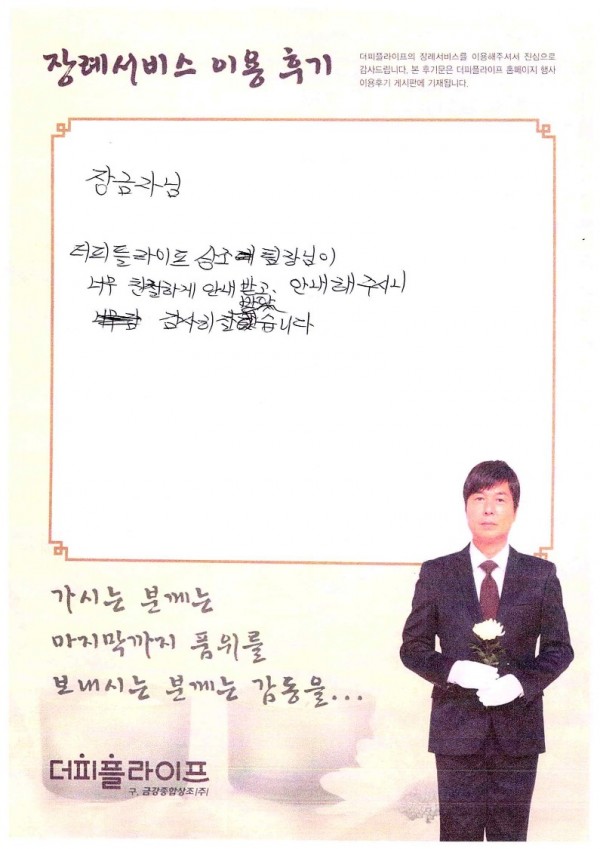 장례서비스 이용 후기
더피플라이프의 장례서비스를 이용해주셔서 진심으로
감사드립니다. 본 후기문은 더피플라이프 홈페이지 행사
이용후기 게시판에 기재됩니다.
장금자님
더피플라이프 상조 팀장님이
너무 친절하게 안내 받고, 안내해 주셔서
감사히 잘 습니다
가시는 분께는
마지막까지 품위를
보내시는 분께는 감동을...
더피플라이프
구. 금강종합상조(주)